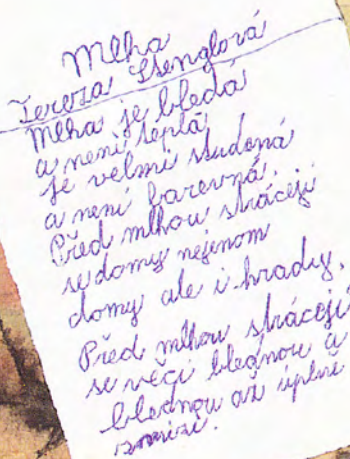 Mlha
Tereza Šenglová
Mlha je bledá
a není teplá,
je velmi studená
a není barevná.
Před mlhou strácejí
se domy nejenom
domy ale i hrady.
Před mlhou strácejí
se věci blednou a
blednou až úplně
zmizí.